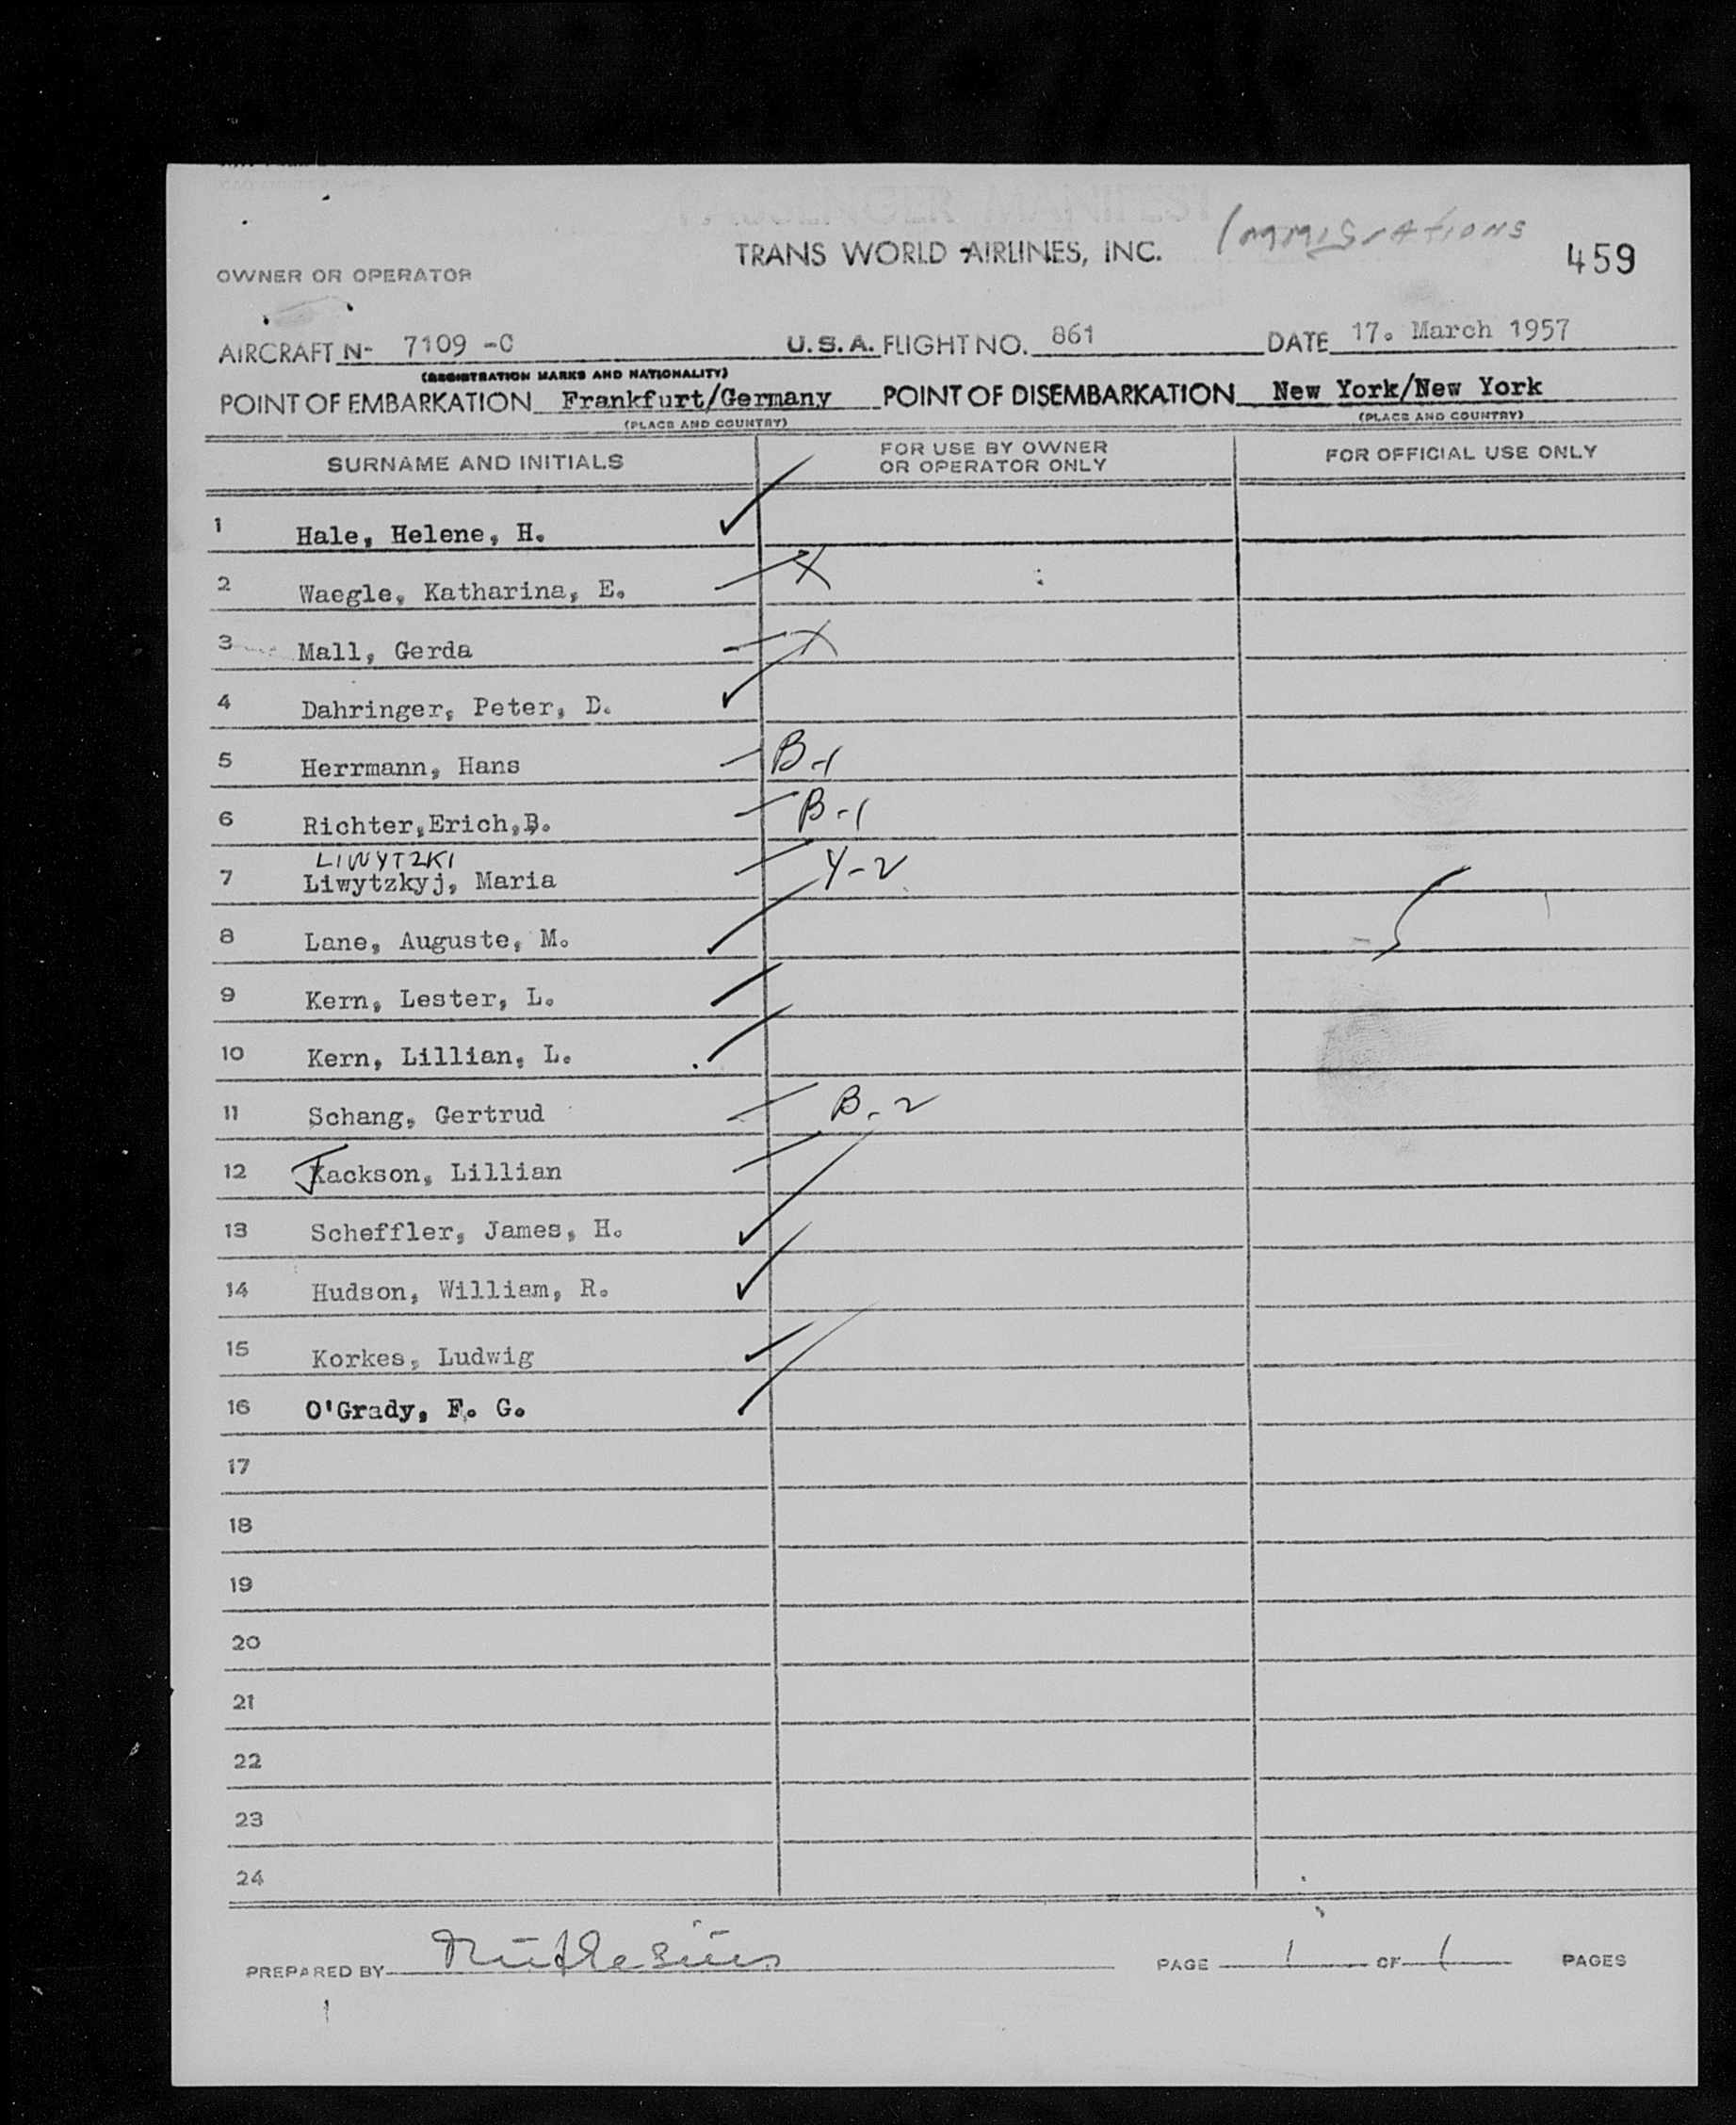 PASSENGER MANIFEST
TRANS WORLD AIRLINES, INC.
Immigrations
459
OWNER OR OPERATOR
AIRCRAFT N- 7109 -C U.S.A. FLIGHT NO. 861 DATE 17. March 1957
(REGISTRATION MARKS AND NATIONALITY)
POINT OF EMBARKATION Frankfurt/Germany POINT OF DISEMBARKATION New York/New York
(PLACE AND COUNTRY) (PLACE AND COUNTRY)
SURNAME AND INITIALS FOR USE BY OWNER OR OPERATOR ONLY FOR OFFICIAL USE ONLY
1 Hale, Helene, H.
2 Waegle, Katharina, E. X
3 Mall, Gerda X
4 Dahringer, Peter, D.
5 Herrmann, Hans B-1
6 Richter,Erich,B. B-1
LIWYTZKI
7 Liwytzkyj, Maria Y-2
8 Lane, Auguste, M.
9 Kern, Lester, L.
10 Kern, Lillian, L.
11 Schang, Gertrud B-2
12 Jackson, Lillian
13 Scheffler, James, H.
14 Hudson, William, R.
15 Korkes, Ludwig
16 O'Grady, F. G.
17
18
19
20
21
22
23
24
PREPARED BY PAGE 1 OF 1 PAGES